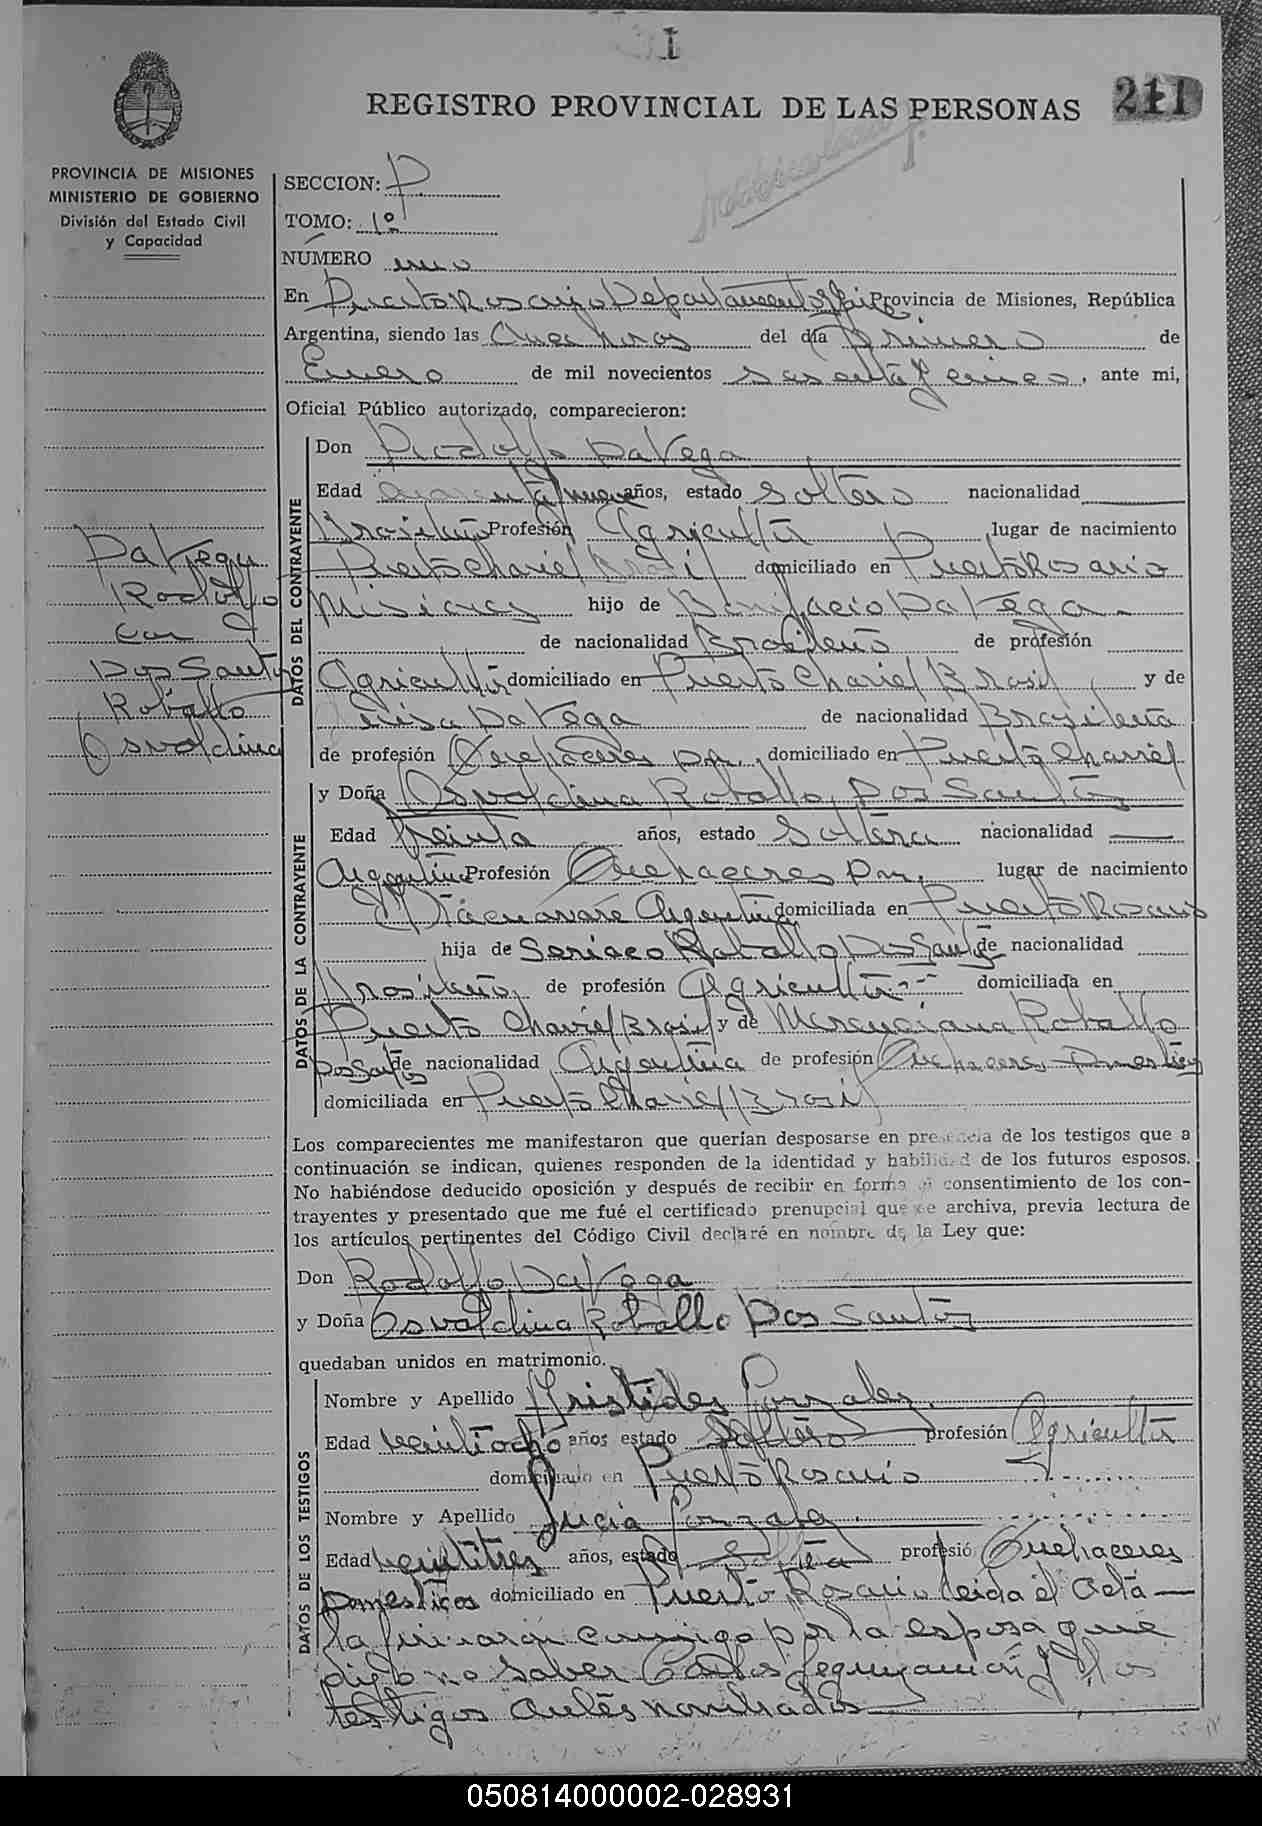 I
REGISTRO PROVINCIAL DE LAS PERSONAS
211
PROVINCIA DE MISIONES
MINISTERIO DE GOBIERNO
División del Estado Civil
y Capacidad
SECCION: P.
TOMO: 1º
NÚMERO uno
En Puerto Rosario Departamento Provincia de Misiones, República
Argentina, siendo las horas del día primero de
Enero de mil novecientos sesenta y cinco, ante mi,
Oficial Público autorizado, comparecieron:
DATOS DEL CONTRAYENTE
Don Rodolfo Da Vega
Edad cuarenta y nueve años, estado Soltero nacionalidad
Brasileño Profesión Agricultor lugar de nacimiento
Puerto Chavie/Brasil domiciliado en Puerto Rosario
Misiones hijo de Bonifacio Da Vega
de nacionalidad Brasileño de profesión
Agricultor domiciliado en Puerto Chavie/Brasil y de
Da Vega de nacionalidad Brasileña
de profesión Quehaceres Dm. domiciliado en Puerto
Da Vega
Rodolfo
con
Dos Santos
Roballo
Osvaldina
DATOS DE LA CONTRAYENTE
y Doña Osvaldina Roballo Dos Santos
Edad treinta años, estado Soltera nacionalidad
Argentina Profesión Quehaceres Dm. lugar de nacimiento
Argentina domiciliada en Puerto Rosario
hija de Roballo Dos Santos de nacionalidad
Brasileño de profesión Agricultor domiciliada en
Puerto Chavie/Brasil y de Roballo
Dos Santos de nacionalidad Argentina de profesión Quehaceres Domesticos
domiciliada en Puerto Chavie/Brasil
Los comparecientes me manifestaron que querían desposarse en presencia de los testigos que a
continuación se indican, quienes responden de la identidad y habilidad de los futuros esposos.
No habiéndose deducido oposición y después de recibir en forma el consentimiento de los con-
trayentes y presentado que me fué el certificado prenupcial que se archiva, previa lectura de
los artículos pertinentes del Código Civil declaré en nombre de la Ley que:
Don Rodolfo Da Vega
y Doña Osvaldina Roballo Dos Santos
quedaban unidos en matrimonio.
DATOS DE LOS TESTIGOS
Nombre y Apellido Aristides Gonzalez
Edad veintiocho años estado Soltero profesión Agricultor
domiciliado en Puerto Rosario
Nombre y Apellido Lucia Gonzalez
Edad veintitres años, estado Soltera profesió Quehaceres
Domesticos domiciliado en Puerto Rosario leida el Acta
la firmaron conmigo por la esposa que
dijo no saber y los
testigos antes nombrados
050814000002-028931